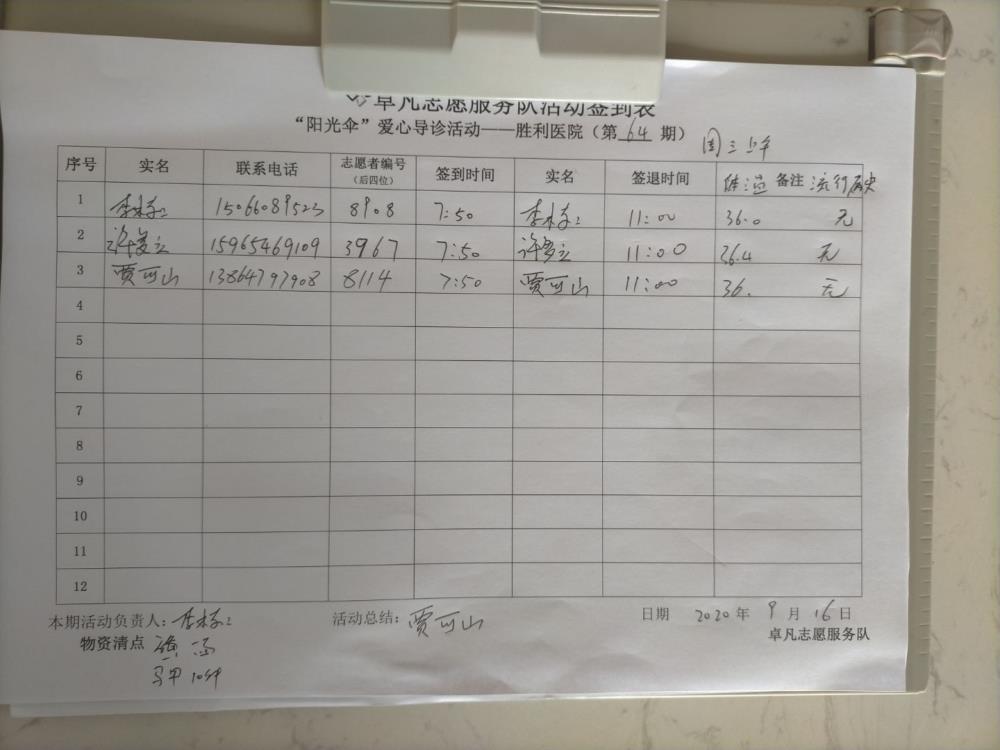 卓凡志愿服务队活动签到表
“阳光伞”爱心导诊活动——胜利医院（第 64 期） 周三上午
序号 实名 联系电话 志愿者编号（后四位） 签到时间 实名 签退时间 体温 备注 流行病史
1 15066089523 8908 7:50 11:00 36.0 无
2 许多立 15965469109 3967 7:50 许多立 11:00 36.4 无
3 贾可山 13864797908 8114 7:50 贾可山 11:00 36. 无
4
5
6
7
8
9
10
11
12
本期活动负责人： 活动总结：贾可山 日期 2020 年 9 月 16 日
物资清点 卓凡志愿服务队
马甲 10件